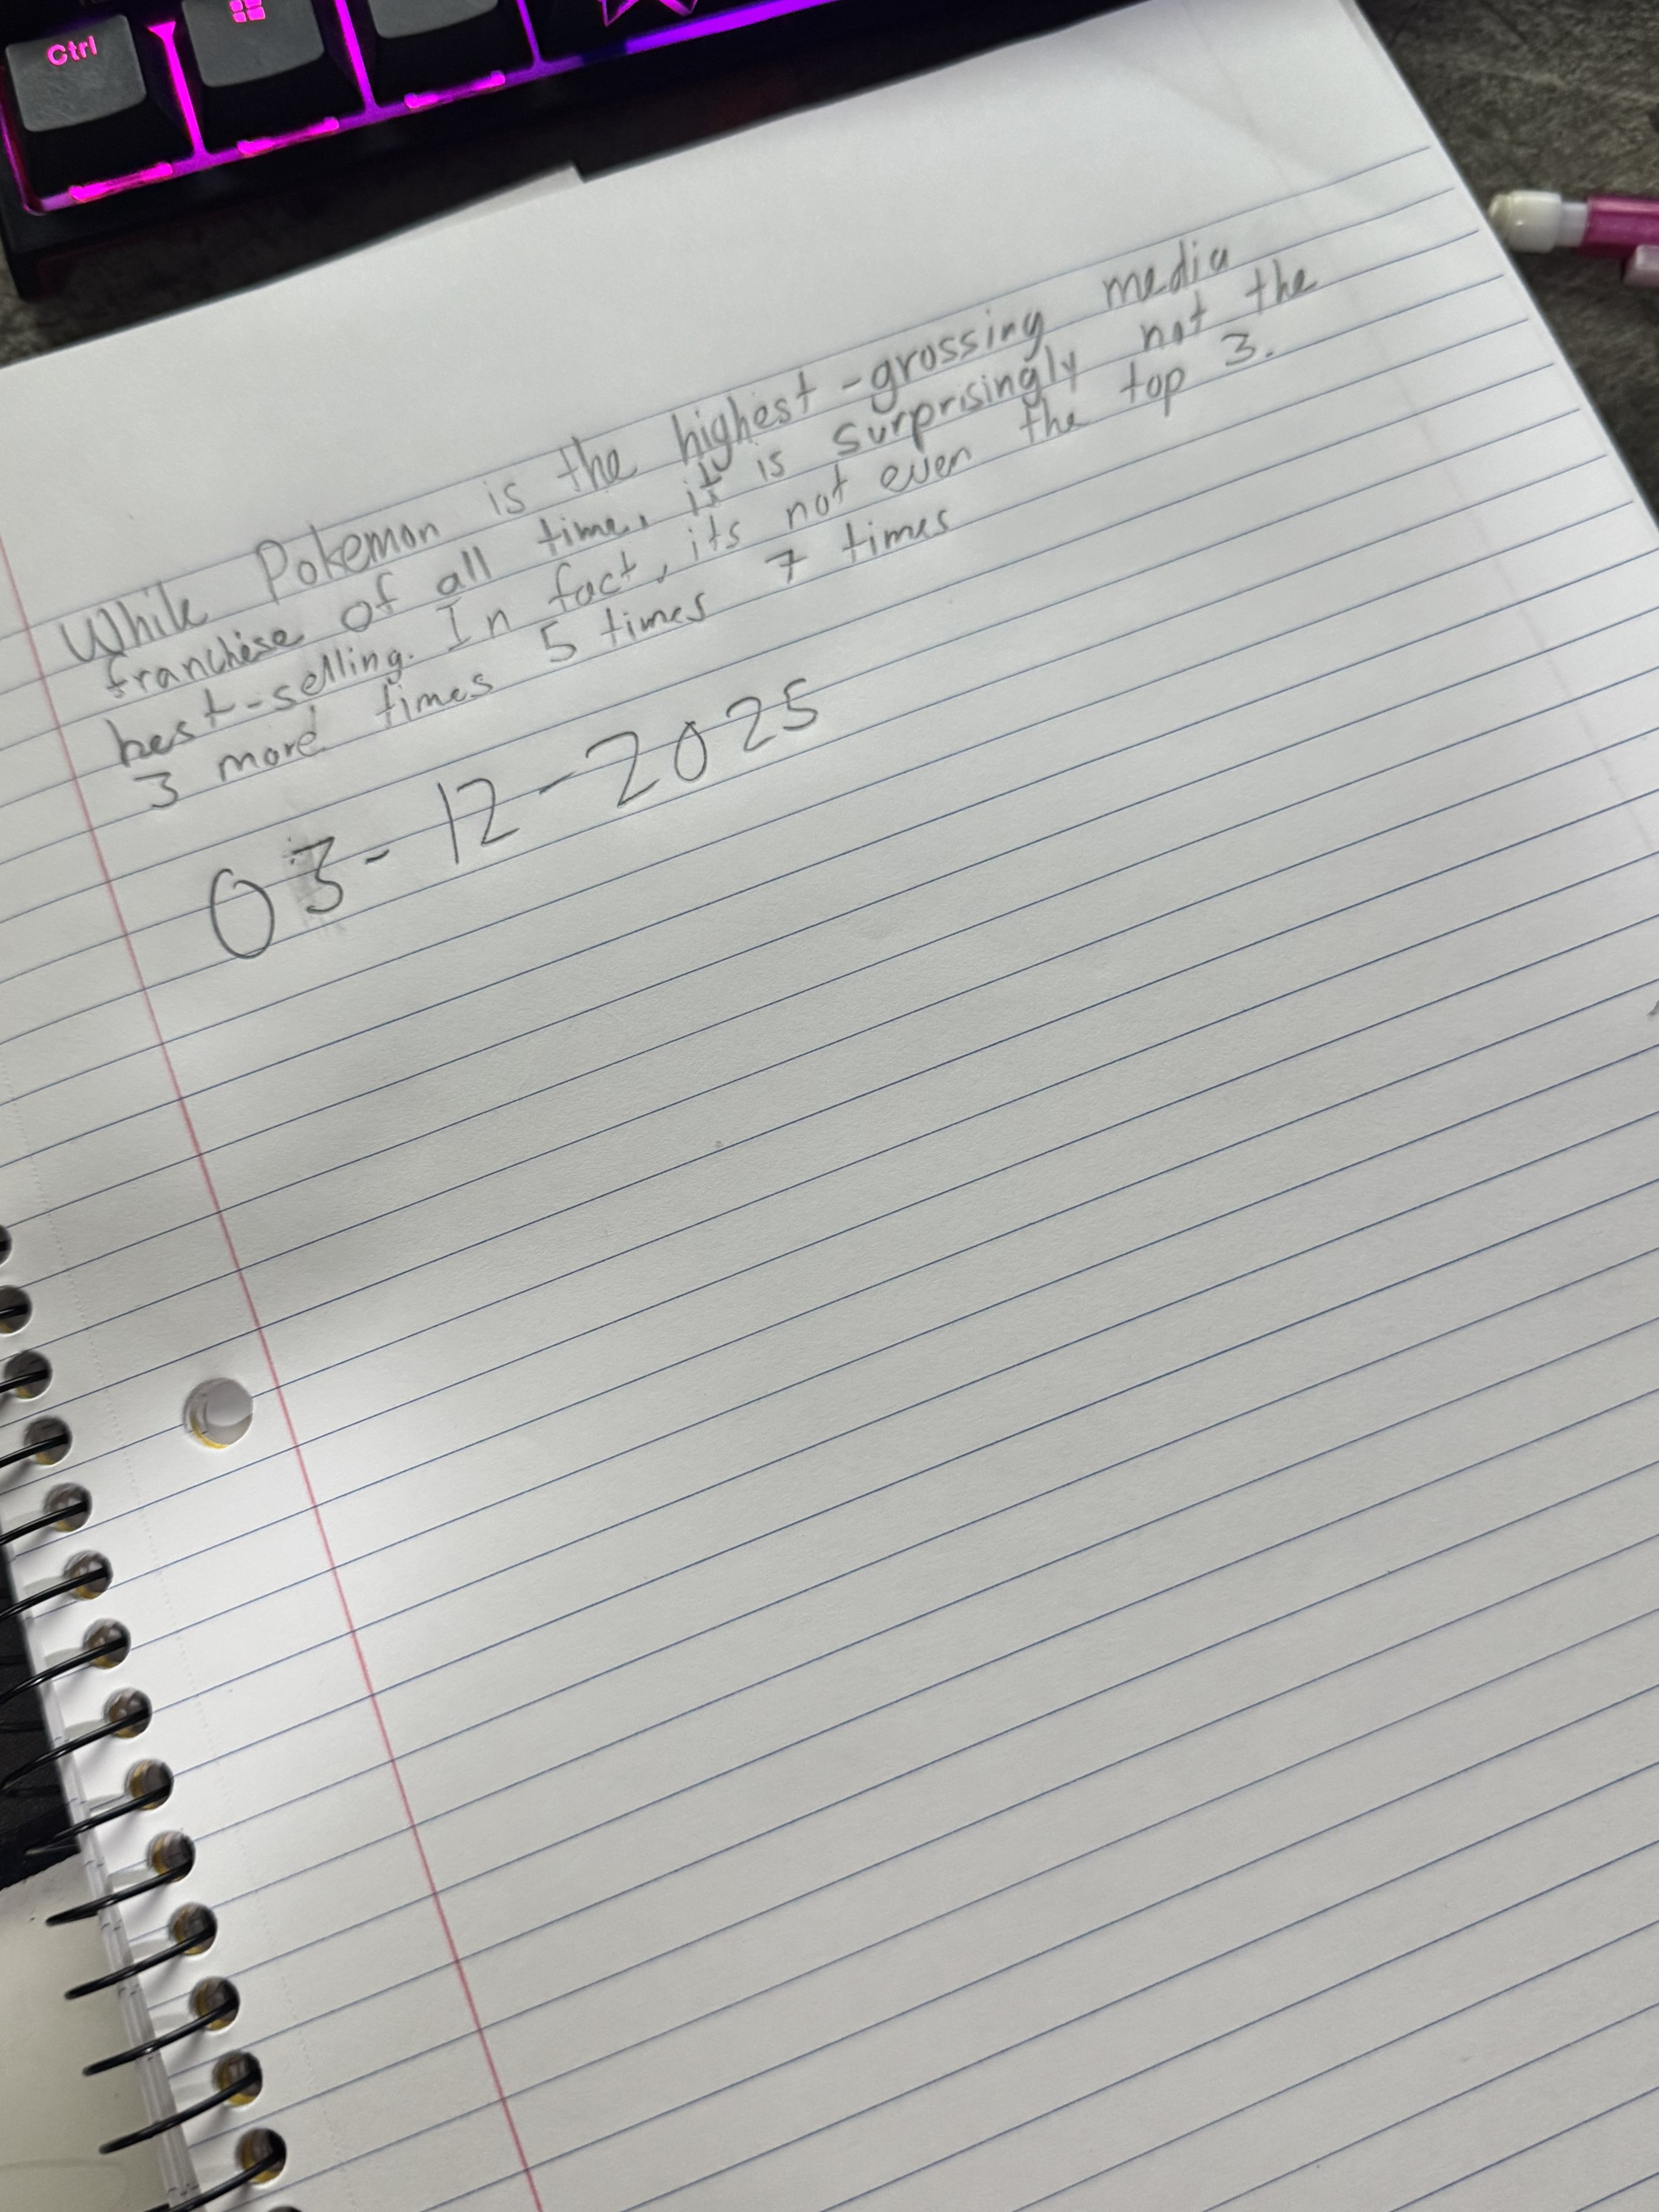 Ctrl
While Pokemon is the highest-grossing media
franchise of all time, it is surprisingly not the
best-selling. In fact, its not even the top 3.
3 more times 5 times 7 times
03-12-2025